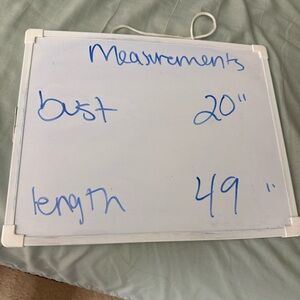 Measurements
bust 20"
length 49"